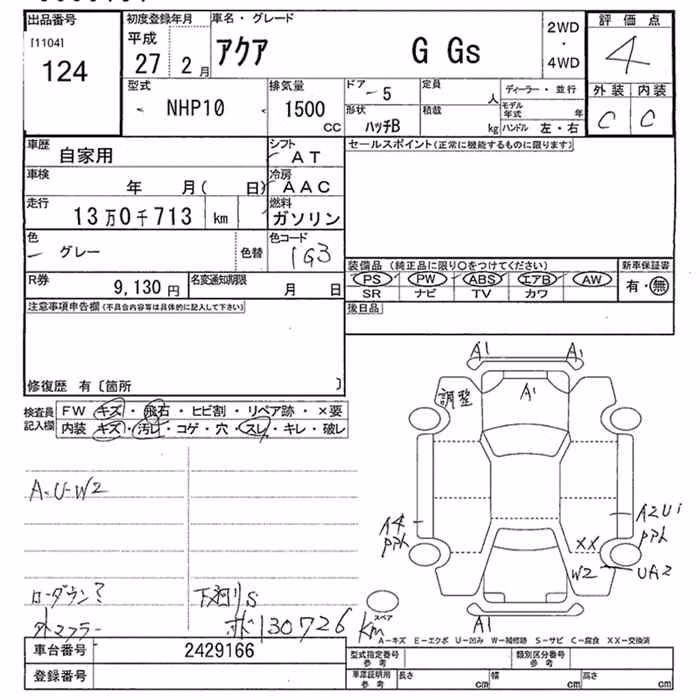 出品番号
[1104]
124
初度登録年月
平成
27 2 月
車名・グレード
アクア G Gs
2WD
・
4WD
評価点
4
外装 内装
C C
型式
NHP10
排気量
1500
CC
ドア
5
定員
人
形状
ハッチB
積載
kg
ディーラー・並行
モデル年式 年
ハンドル 左・右
車歴
自家用
シフト
AT
車検
年 月( 日)
冷房
AAC
走行
13万0千713 km
燃料
ガソリン
色
グレー
色替
色コード
1G3
R券
9,130 円
名変通知期限
月 日
セールスポイント(正常に機能するものに限ります)
装備品 (純正品に限り〇をつけてください)
PS PW ABS エアB AW
SR ナビ TV カワ
新車保証書
有・無
後日品
注意事項申告欄(不具合内容等は具体的に記入して下さい)
修復歴 有〔箇所 〕
検査員記入欄
FW キズ・飛石・ヒビ割・リペア跡・×要
内装 キズ・汚レ・コゲ・穴・スレ・キレ・破レ
A.U-W2
ローダウン?
外マフラー
下廻りS
ボ130726km
A1 A1
調整
A1
A4
PPハ
A2U1
PPハ
XX
W2
UA2
A1
スペア
A-キズ E-エクボ U-凹み W-補修跡 S-サビ C-腐食 XX-交換済
車台番号
2429166
登録番号
型式指定番号
参考
類別区分番号
参考
車庫証明用
参考
長さ cm
幅 cm
高さ cm